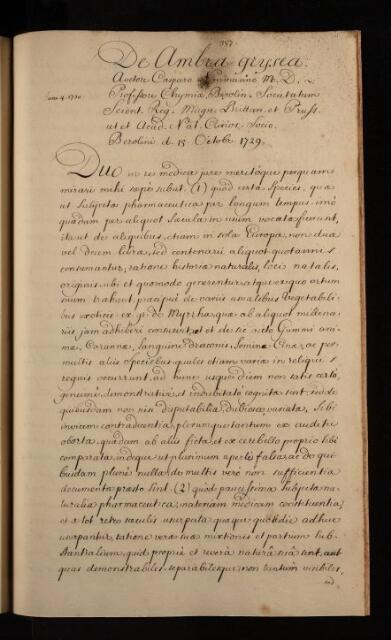 De Ambra grysea.
Autore Casparo Neumanno M. D.
June 4. 1730. Professore Chymiæ, Berolin. Societatum
Scient. Reg. Magn. Brittan. et Pruss.
ut et Acad. Nat. Curios. Socio.
Berolini d. 15 Octobr. 1729.
Duo in re medica præ meritoque perquam
mirari mihi sæpe subiit. (1) quod certæ species, quæ
ut subjecta pharmaceutica per longum tempus, imò
quædam per aliquot sæcula in usum vocatæ fuerunt,
ita ut de aliquibus, etiam in sola Europa, non duæ
vel decem libræ, sed centenarii aliquot quotannis
consumantur, ratione historiæ naturalis, loci natalis,
originis, ubi et quomodo generentur, atque ex quo ortum
suum trahant, præcipue de variis usualibus Vegetabili-
bus exoticis ex. gr. de Myrrha, quæ ab aliquot millenar
riis jam adhiberi consuevit, et de sic dicto Gummi ani-
mæ, Carannæ, Sanguine Draconis, Semine Cinæ, ac per-
multis aliis speciebus, quales etiam variæ in reliquis
regnis occurrunt, ad hunc usque diem non satis certò,
genuinè, demonstrativè, et indubitatò cognitæ sint, sed de
quibusdam non nisi disputabilia, dubiosa, variata, sibi
invicem contradicentia, plerumque tantum ex auditu
oborta, quædam ab aliis ficta, et ex cerebello proprio sibi
comparata, indeque ut plurimum apertè falsa, ac de qui-
busdam planè nulla, de multis verò non sufficientia
documenta præsto sint. (2) quod pauicissima subjecta na-
turalia pharmaceutica, materiam medicam constituentia,
et à tot retro sæculis usurpata, quæque quotidie adhuc
usurpantur, ratione veræ suæ mixtionis et partium sub-
stantialium, quid propriè et reverà naturâ suâ sint, aut
quas demonstrabiles, separabilesque, non tantum visibiles,
sed